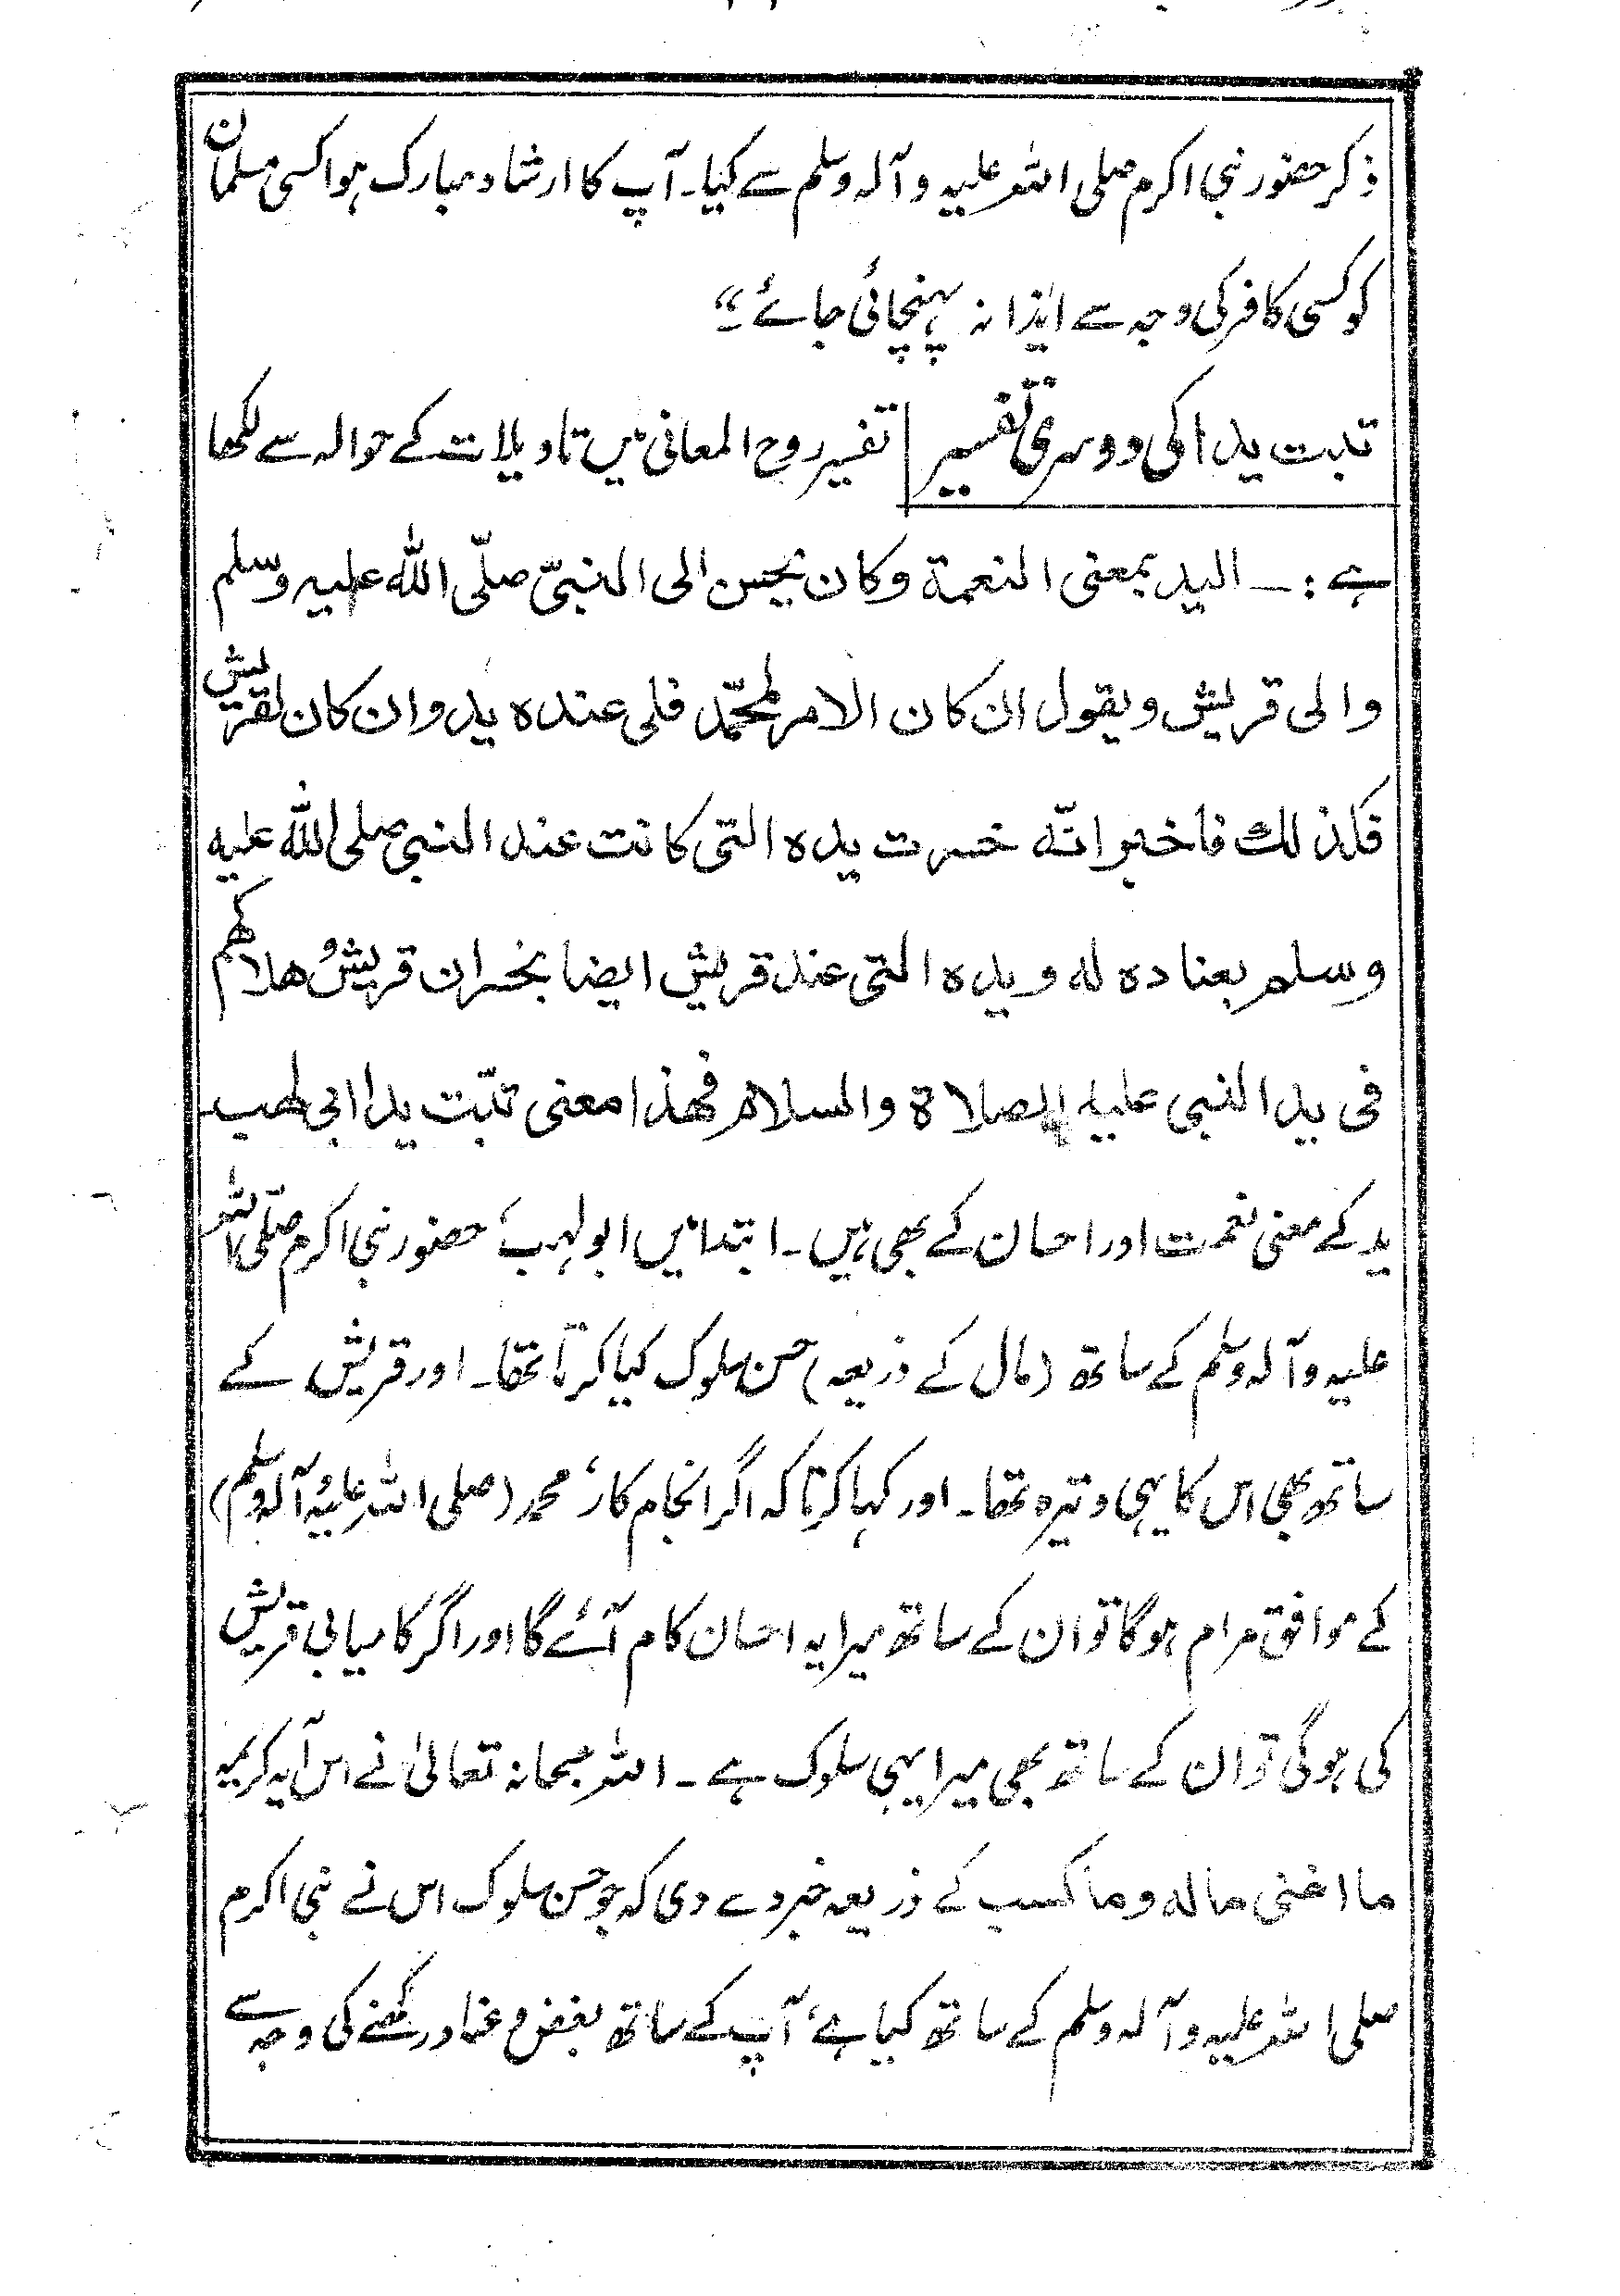 ذکر حضور نبی اکرم صلی اللہ علیہ وآلہ وسلم سے کیا۔ آپ کا ارشاد مبارک ہوا کسی مسلمان
کو کسی کافر کی وجہ سے ایذا نہ پہنچائی جائے۔“
تبت یدا کی دوسری تفسیر تفسیر روح المعانی میں تاویلات کے حوالہ سے لکھا
ہے :۔ الید بمعنی النعمة وکان یحسن الی النبیّ صلّی اللّٰہ علیہ وسلم
والی قریش ویقول ان کان الامر لمحمّد فلی عندہ ید وان کان لقریش
فکذلک فاخبر انّہ خسرت یدہ التی کانت عند النبی صلی اللّٰہ علیہ
وسلم بعنادہ لہ ویدہ التی عند قریش ایضا بخسران قریش وھلاکھم
فی ید النبی علیہ الصلاة والسلام فھذا معنی تبّت یدا ابی لھب
ید کے معنی نعمت اور احسان کے بھی ہیں۔ ابتدا میں ابو لہب، حضور نبی اکرم صلّی اللہ
علیہ وآلہ وسلم کے ساتھ (مال کے ذریعہ) حسن سلوک کیا کرتا تھا۔ اور قریش کے
ساتھ بھی اس کا یہی وتیرہ تھا۔ اور کہا کرتا کہ اگر انجام کار، محمد (صلی اللہ علیہ وآلہ وسلم)
کے موافق مرام ہوگا تو ان کے ساتھ میرا یہ احسان کام آئے گا اور اگر کامیابی قریش
کی ہوگی تو ان کے ساتھ بھی میرا یہی سلوک ہے۔ اللہ سبحانہ تعالیٰ نے اس آیہ کریمہ
ما اغنی مالہ وما کسب کے ذریعہ خبر دے دی کہ جو حسن سلوک اس نے نبی اکرم
صلی اللہ علیہ وآلہ وسلم کے ساتھ کیا ہے، آپ کے ساتھ بغض و عناد رکھنے کی وجہ سے